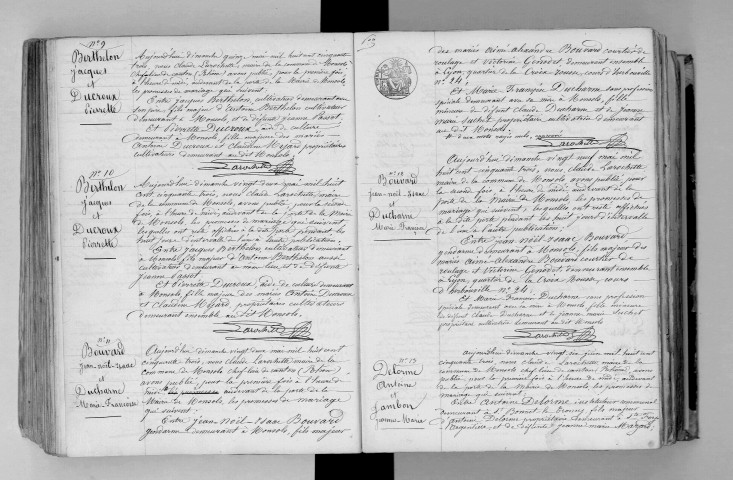 N° 9
Berthelon
Jacques
et
Ducroux
Pierrette
Aujourd'hui dimanche quinze mai mil huit cent cinquante
trois, nous Claude Larochette, maire de la commune de Monsols
chef lieu de canton (Rhône) avons publié, pour la première fois
à l'heure de midi audevant de la porte de la Mairie de Monsols,
les promesses de mariage qui suivent
Entre Jacques Berthelon, cultivateur demeurant au
fils majeur d'antoine Berthelon cultivateur
demeurant à Monsols et de défunte jeanne
Et Pierrette Ducroux, aide de culture
demeurant à Monsols, fille majeure des mariés
Antoine Ducroux et Claudine propriétaires
cultivateurs demeurant au dit Monsols.
Larochette
N° 10
Berthelon
Jacques
et
Ducroux
Pierrette
Aujourd'hui dimanche vingt deux mai mil huit
cent cinquante trois, nous Claude Larochette, maire
de la commune de Monsols, avons publié, pour la seconde
fois, à l'heure de midi, audevant de la porte de la Mairie
de Monsols, les promesses de mariage qui suivent
lesquelles ont resté affichées à la dite porte pendant les
huit jours d'intervalle de l'un à l'autre publication;
Entre Jacques Berthelon cultivateur demeurant
à fils majeur d'antoine Berthelon aussi
cultivateur demeurant au même lieu, et de défunte
jeanne
Et Pierrette Ducroux, aide de culture demeurant
à Monsols, fille majeure des mariés Antoine Ducroux
et Claudine propriétaires cultivateurs
demeurant ensemble au dit Monsols.
Larochette
N° 11
Bouvard
Jean-noël-Isaac
et
Ducharne
Marie-Françoise
Aujourd'hui dimanche vingt deux mai mil huit cent
cinquante trois, nous Claude Larochette maire de la
commune de Monsols chef lieu de canton (Rhône)
avons publié pour la première fois à l'heure de
midi audevant de la porte de la
Mairie de Monsols, les promesses de mariage
qui suivent:
Entre jean-Noël-Isaac Bouvard
gendarme demeurant à Monsols, fils majeur
des mariés Aimé-Alexandre Bouvard courtier de
roulage et Victorine demeurant ensemble
à Lyon, quartier de la Croix-rousse, cours d'herbouville
N° 24;
Et Marie Françoise Ducharne sans profession
demeurant avec sa mère à Monsols, fille
mineure du défunt Claude Ducharne et de jeanne
marie propriétaire cultivatrice demeurant
au dit Monsols.
Larochette
N° 12
Bouvard
jean-noël-Isaac
et
Ducharne
Marie Françoise
Aujourd'hui dimanche vingt neuf mai mil
huit cent cinquante trois, nous Claude Larochette
maire de la commune de Monsols avons publié, pour
la seconde fois à l'heure de midi, audevant de la
porte de la Mairie de Monsols, les promesses de
mariage qui suivent lesquelles ont resté affichées
à la dite porte pendant les huit jours d'intervalle
de l'un à l'autre publication;
Entre jean noël Isaac Bouvard
gendarme demeurant à Monsols, fils majeur des
mariés Aimé-Alexandre Bouvard courtier de
roulage et Victorine demeurant ensemble
à Lyon, quartier de la Croix Rousse, cours
d'herbouville N° 24.
Et Marie Françoise Ducharne sans profession
demeurant avec sa mère à Monsols fille mineure
du défunt Claude Ducharne et de jeanne marie
propriétaire cultivatrice demeurant au dit Monsols.
Larochette
N° 13
Delorme
Antoine
et
Jambon
Jeanne Marie
Aujourd'hui dimanche vingt six juin mil huit cent
cinquante trois, nous Claude Larochette maire de la
commune de Monsols chef lieu de canton (Rhône), avons
publié, pour la première fois à l'heure de midi, audevant
de la porte de la Mairie de Monsols, les promesses de
mariage qui suivent
Entre Antoine Delorme, instituteur communal
demeurant à St Bonnet le fils majeur
d'Antoine Delorme propriétaire demeurant à
et de défunte jeanne marie